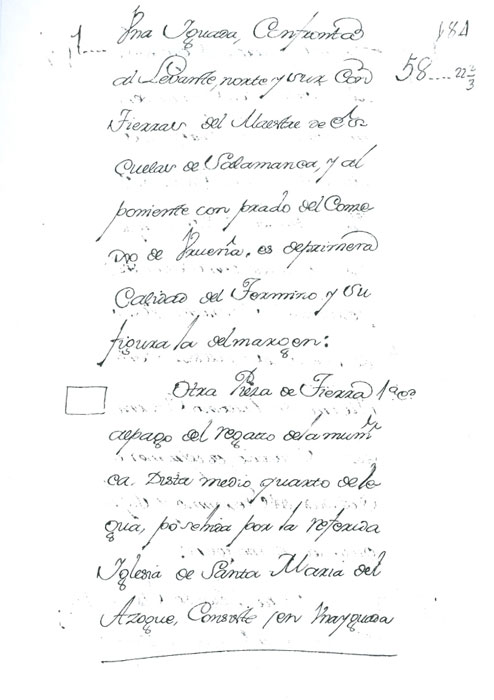 1.... Una Yguada, Confronta 184
al Levante, norte y sur Con 58.... 22 2/3
Tierras del Maestre de Es
cuelas de Salamanca, y al
poniente con prado del Come
de primera
Calidad del Termino y su
figura la del margen:
Otra Pieza de Tierra
al pago del regato de la mum
ca. Dista medio quarto de le
gua, posehida por la referida
Iglesia de Santa Maria del
Azogue, Consiste en Una yguada